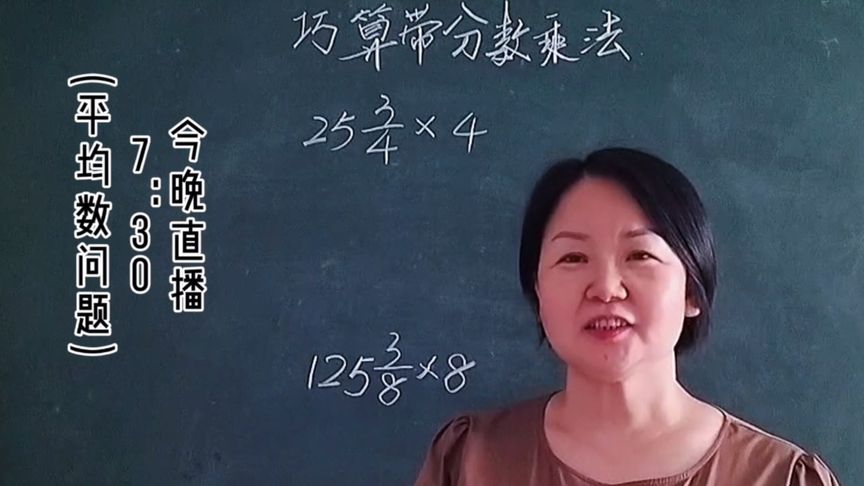 巧算带分数乘法
25 3/4 × 4
125 3/8 × 8
今晚直播
7:30
(平均数问题)